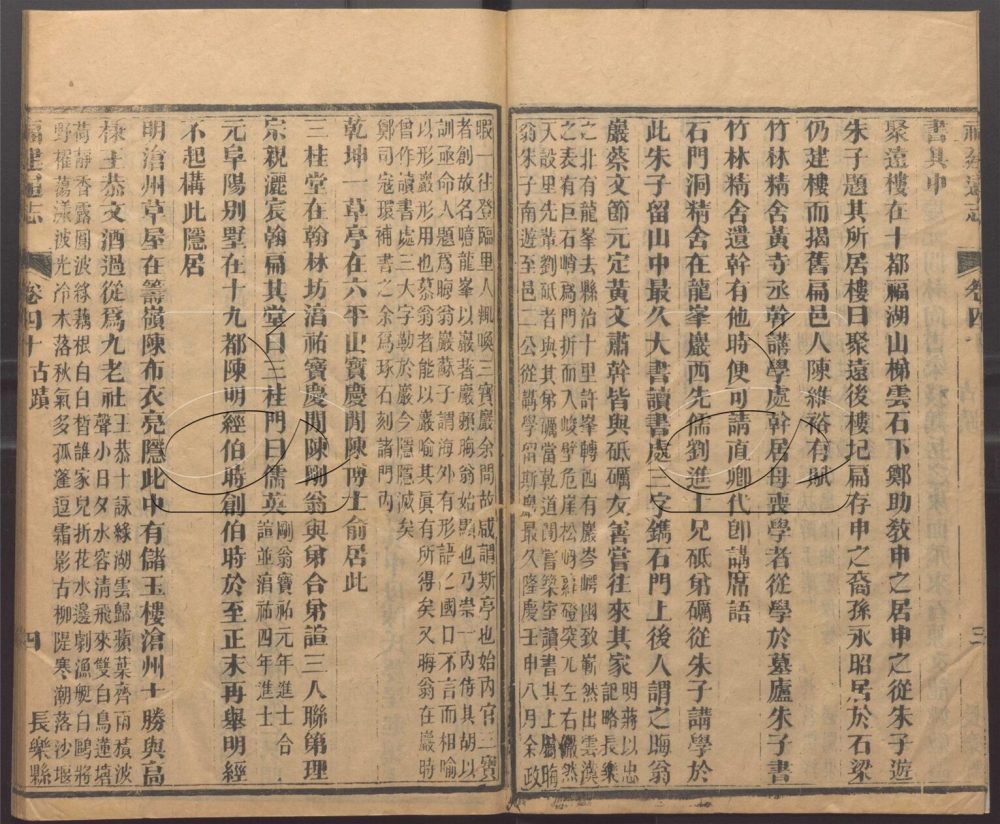 福建通志
卷四十
三
書其中
聚遠樓在十都福湖山梯雲石下鄭助敎申之居申之從朱子遊
朱子題其所居樓曰聚遠後樓圮扁存申之裔孫永昭居於石梁
仍建樓而揭舊扁邑人陳維裕有賦
竹林精舍黃寺丞幹講學處幹居母喪學者從學於墓廬朱子書
竹林精舍遺幹有他時便可請直卿代卽講席語
石門洞精舍在龍峯巖西先儒劉進士兄砥弟礪從朱子講學於
此朱子留山中最久大書讀書處三字鐫石門上後人謂之晦翁
巖蔡文節元定黃文肅幹皆與砥礪友善嘗往來其家
明蔣以忠記略長樂
之北有龍峯去縣治十里許峯轉西有巖岑崿幽致嶄然出雲漢
之表有巨石峙爲門折而入峻壁危崖松磴突兀左右儼然
天設里先輩劉砥者與其弟礪當乾道間嘗築室讀書其上
翁朱子南遊至邑二公從講學留斯最久隆慶壬申八月余政
暇一往登臨里人輒喚三寶巖余問故咸謂斯亭也始內官三寶
者創故名噫龍峯以巖著巖賴晦翁始顯也乃崇一內侍其胡以
訓亟命人題爲晦翁巖蘇子謂海外有形語之國口不言而相喻
以形巖形用也慕翁者能以巖喻其眞有所得矣又晦翁在巖時
曾作讀書處三大字勒於巖今隱隱滅矣
鄭司寇環補書之余爲琢石刻諸門內
乾坤一草亭在六平山寶慶閒陳博士俞居此
三桂堂在翰林坊淯祐寶慶閒陳剛翁與弟合弟諠三人聯第理
宗親灑宸翰扁其堂曰三桂門曰儒英
剛翁寶祐元年進士合
諠並淯祐四年進士
元阜陽别墅在十九都陳明經伯時創伯時於至正末再舉明經
不起構此隱居
明滄州草屋在籌嶺陳布衣亮隱此中有儲玉樓滄州十勝與高
棅王恭文酒過從爲九老社
王恭十詠綠湖雲歸蘋葉齊雨積波
聲小日夕水容清飛來雙白鳥蓮塘
荷靜香露圓波綠藕根白白皙誰家兒折花水邊劇漁艇白鷗將
野櫂蕩漾波光冷木落秋氣多孤蓬逗霜影古柳隄寒潮落沙堰
福建通志
卷四十
古蹟
四
長樂縣